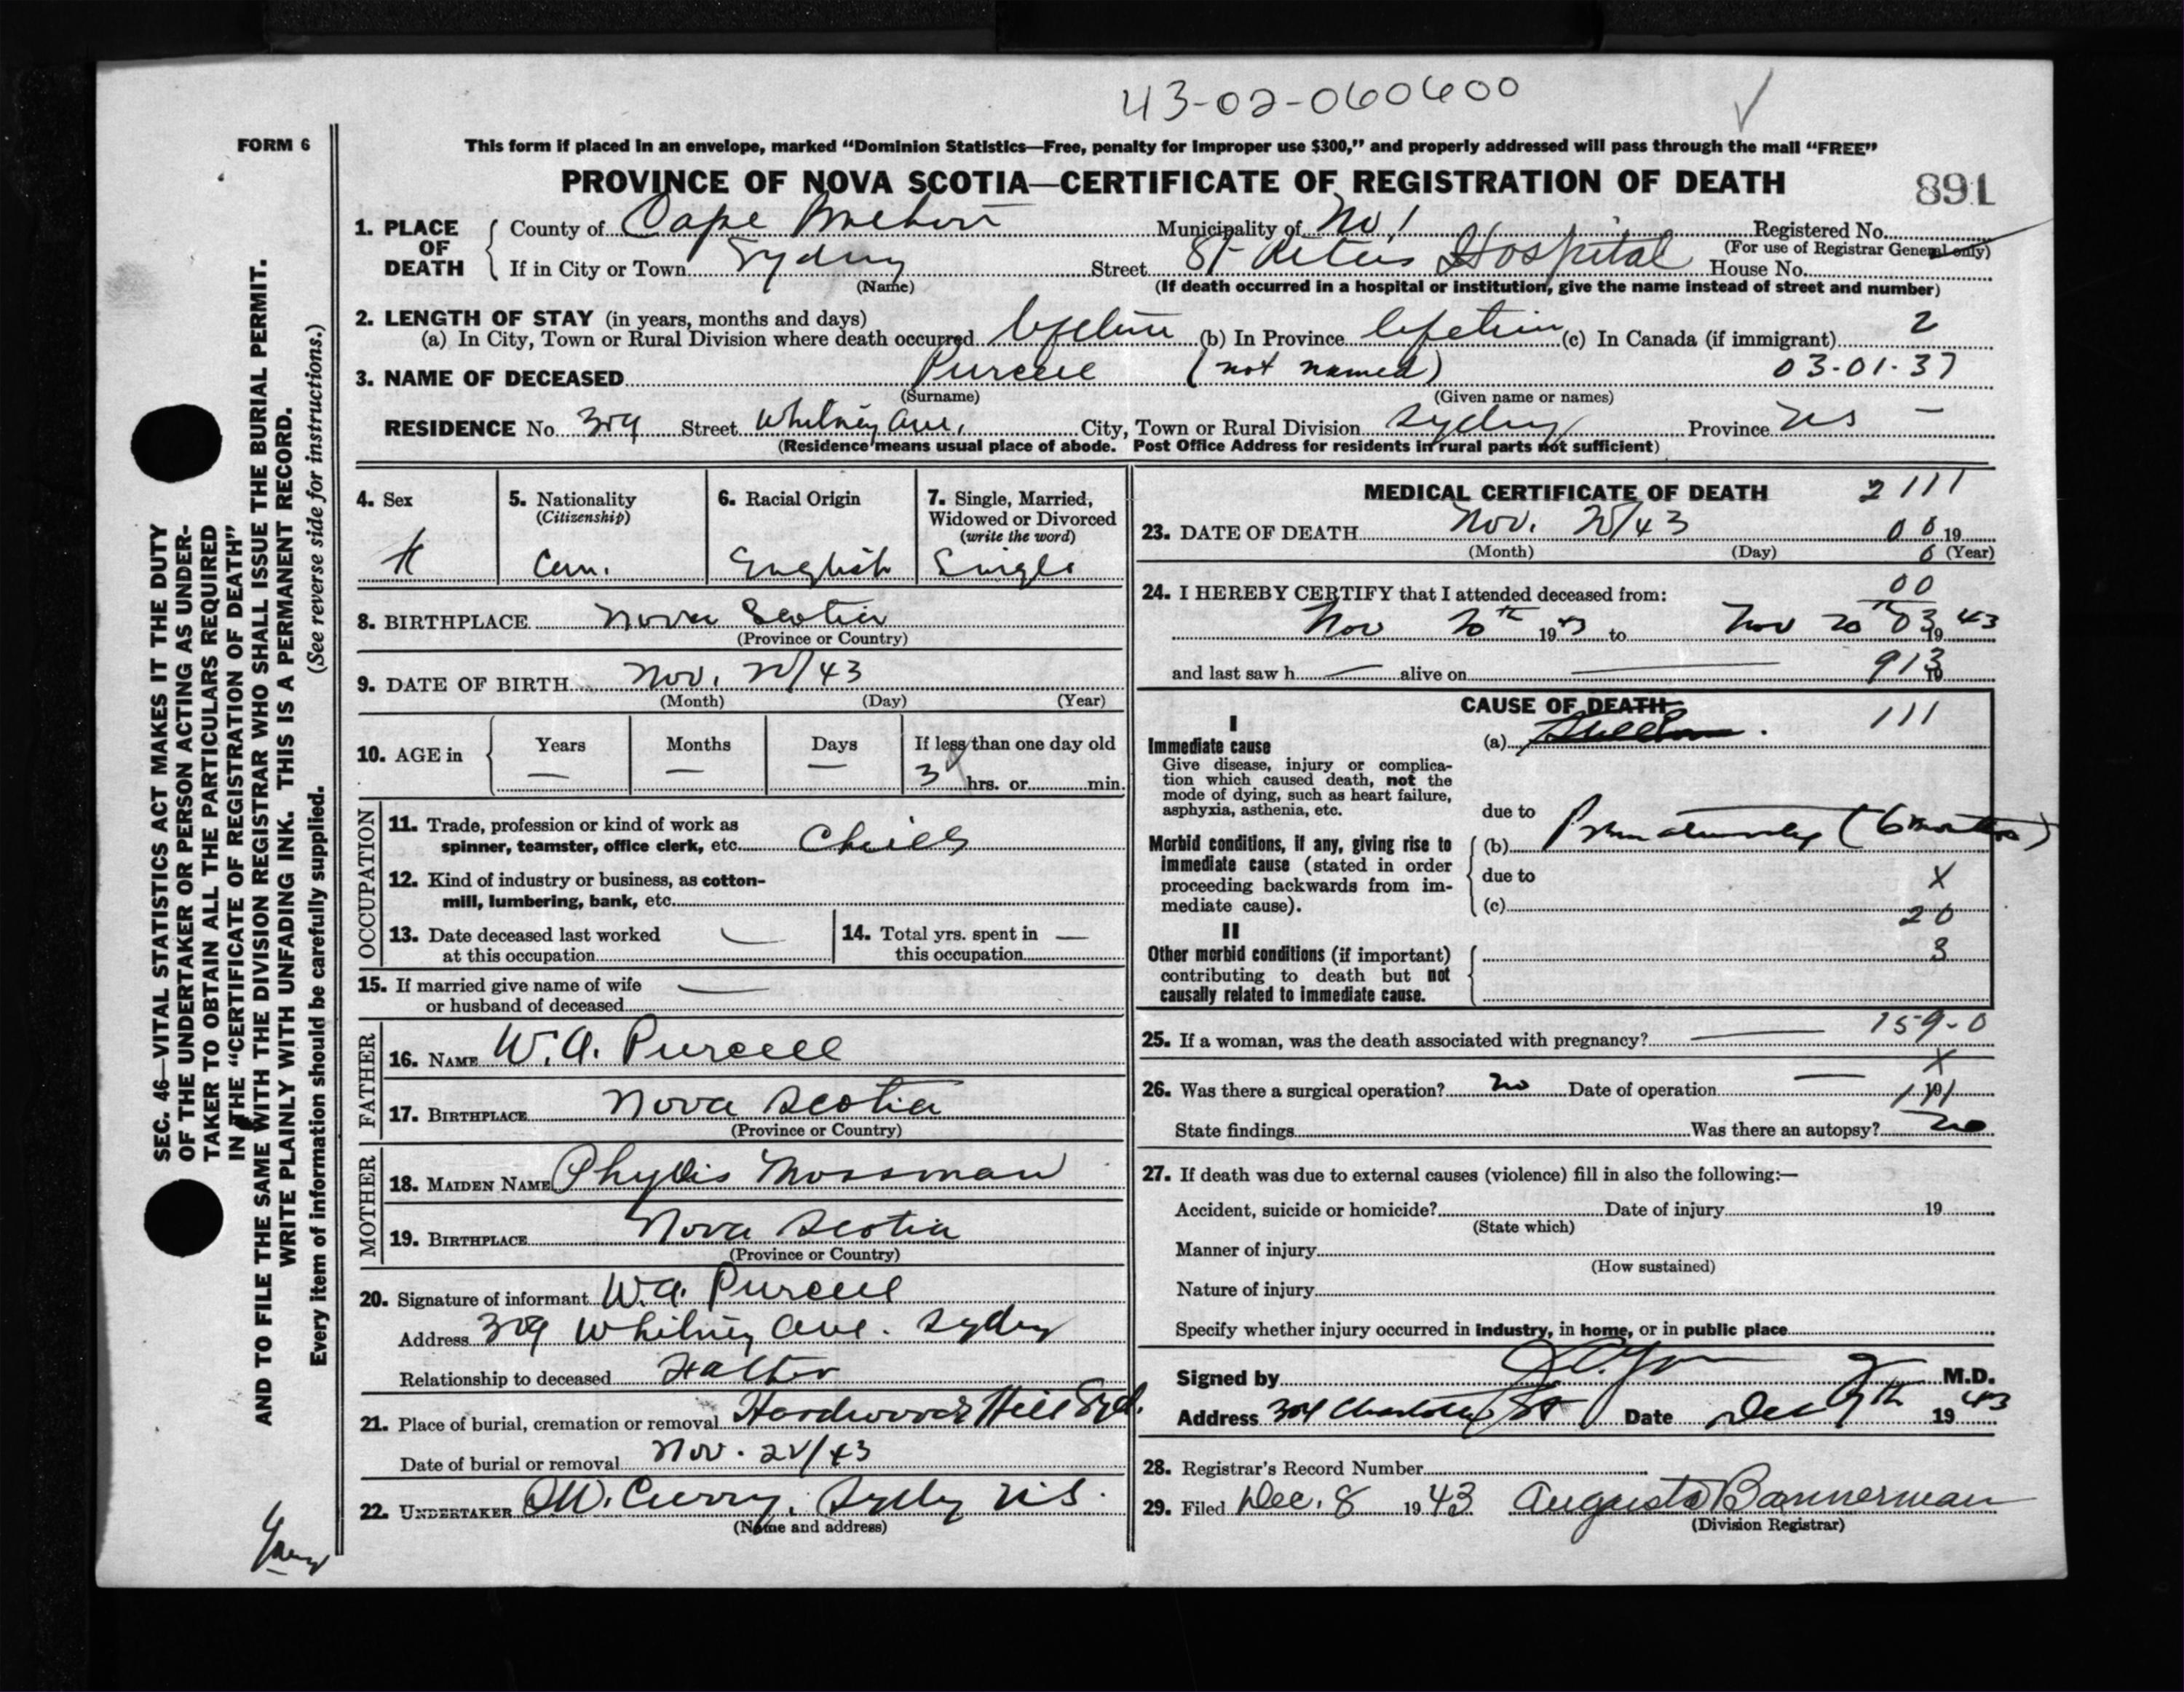 43-02-060600
FORM 6
This form if placed in an envelope, marked “Dominion Statistics—Free, penalty for improper use $300,” and properly addressed will pass through the mail “FREE”
PROVINCE OF NOVA SCOTIA—CERTIFICATE OF REGISTRATION OF DEATH
891
1. PLACE OF DEATH
County of Cape Breton Municipality of No 1 Registered No.
(For use of Registrar General only)
If in City or Town Sydney Street St Hospital House No.
(Name) (If death occurred in a hospital or institution, give the name instead of street and number)
2. LENGTH OF STAY (in years, months and days)
(a) In City, Town or Rural Division where death occurred lifetime (b) In Province lifetime (c) In Canada (if immigrant) 2
3. NAME OF DECEASED Purcell (not named) 03-01-37
(Surname) (Given name or names)
RESIDENCE No. 309 Street Whitney Ave. City, Town or Rural Division Sydney Province NS –
(Residence means usual place of abode. Post Office Address for residents in rural parts not sufficient)
4. Sex
5. Nationality (Citizenship) Can.
6. Racial Origin English
7. Single, Married, Widowed or Divorced (write the word) Single
8. BIRTHPLACE Nova Scotia
(Province or Country)
9. DATE OF BIRTH Nov. 20/43
(Month) (Day) (Year)
10. AGE in Years — Months — Days — If less than one day old
3 hrs. or min.
OCCUPATION
11. Trade, profession or kind of work as
spinner, teamster, office clerk, etc. Child
12. Kind of industry or business, as cotton-
mill, lumbering, bank, etc.
13. Date deceased last worked
at this occupation —
14. Total yrs. spent in
this occupation —
15. If married give name of wife
or husband of deceased —
FATHER
16. NAME W. A. Purcell
17. BIRTHPLACE Nova Scotia
(Province or Country)
MOTHER
18. MAIDEN NAME Phyllis Mossman
19. BIRTHPLACE Nova Scotia
(Province or Country)
20. Signature of informant W. A. Purcell
Address 309 Whitney Ave. Sydney
Relationship to deceased Father
21. Place of burial, cremation or removal Hardwood Hill Syd.
Date of burial or removal Nov. 22/43
22. UNDERTAKER Curry, Sydney N.S.
(Name and address)
MEDICAL CERTIFICATE OF DEATH 2111
23. DATE OF DEATH Nov. 20/43 00 19
(Month) (Day) 6 (Year)
24. I HEREBY CERTIFY that I attended deceased from: 00
Nov 20th 1943 to Nov 20th 03 19 43
and last saw h — alive on — 913 19
CAUSE OF DEATH
111
I
Immediate cause
Give disease, injury or complica-
tion which caused death, not the
mode of dying, such as heart failure,
asphyxia, asthenia, etc.
(a)
due to
Morbid conditions, if any, giving rise to
immediate cause (stated in order
proceeding backwards from im-
mediate cause).
(b) Prematurity (6 months)
due to X
(c) 20
II
Other morbid conditions (if important)
contributing to death but not
causally related to immediate cause.
3
25. If a woman, was the death associated with pregnancy? — 159-0
X
26. Was there a surgical operation? no Date of operation — 19
State findings Was there an autopsy? no
27. If death was due to external causes (violence) fill in also the following:—
Accident, suicide or homicide? Date of injury 19
(State which)
Manner of injury
(How sustained)
Nature of injury
Specify whether injury occurred in industry, in home, or in public place
Signed by M.D.
Address 304 Charlotte St Date Dec 7th 1943
28. Registrar's Record Number
29. Filed Dec. 8 1943 Augusta Bannerman
(Division Registrar)
SEC. 46—VITAL STATISTICS ACT MAKES IT THE DUTY
OF THE UNDERTAKER OR PERSON ACTING AS UNDER-
TAKER TO OBTAIN ALL THE PARTICULARS REQUIRED
IN THE “CERTIFICATE OF REGISTRATION OF DEATH”
AND TO FILE THE SAME WITH THE DIVISION REGISTRAR WHO SHALL ISSUE THE BURIAL PERMIT.
WRITE PLAINLY WITH UNFADING INK. THIS IS A PERMANENT RECORD.
Every item of information should be carefully supplied. (See reverse side for instructions.)